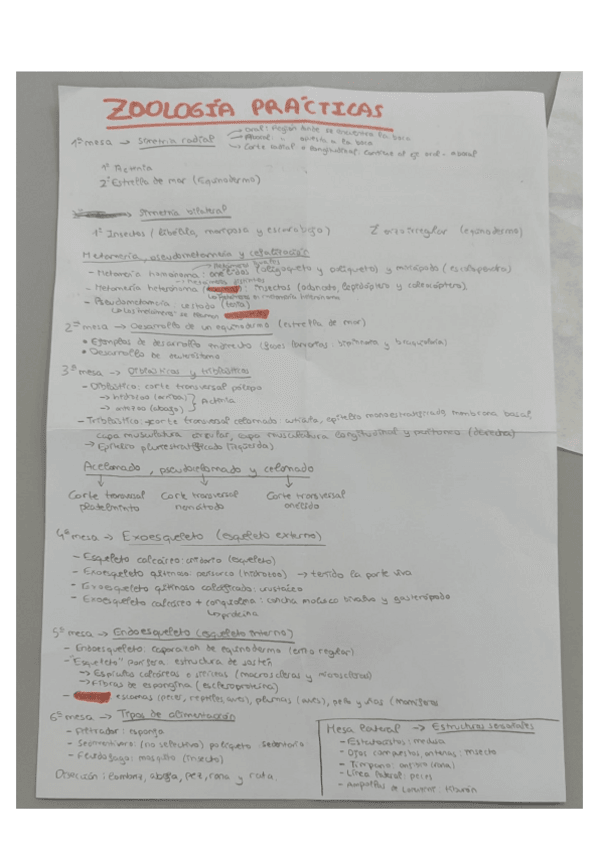 ZOOLOGÍA PRÁCTICAS
1ª mesa → Simetría radial → oral: Región donde se encuentra la boca
→ Aboral: " opuesta a la boca
→ Corte radial o longitudinal: contiene al eje oral-aboral
1º Actinia
2º Estrella de mar (Equinodermo)
→ Simetría bilateral
1º Insectos (libélula, mariposa y escarabajo) 2 erizo irregular (equinodermo)
Metamería, pseudometamería y cefalización
- Metamería homónoma: anélidos (oligoqueto y poliqueto) y miriápodo (escolopendra)
- Metamería heterónoma: insectos (odonato, lepidóptero y coleóptero)
- Pseudometamería: cestodo (tenia)
2ª mesa → Desarrollo de un equinodermo (estrella de mar)
• Ejemplos de desarrollo indirecto (fases larvarias: bipinnaria y braquiolaria)
• Desarrollo de
3ª mesa → Diblásticos y triblásticos
- Diblástico: corte transversal pólipo
→ hidrozoo (arriba)
→ antozoo (abajo) Actinia
- Triblástico: corte transversal celomado: epitelio monoestratificado, membrana basal,
capa musculatura circular, capa musculatura longitudinal y (derecha)
→ Epitelio pluriestratificado (izquierda)
Acelomado, pseudocelomado y celomado
Corte transversal Corte transversal Corte transversal
platelminto nematodo anélido
4ª mesa → Exoesqueleto (esqueleto externo)
- Esqueleto calcáreo: antozoo (esqueleto)
- Exoesqueleto quitinoso: perisarco (hidrozoo) → teñido la parte viva
- Exoesqueleto quitinoso calcificado: crustáceo
- Exoesqueleto calcáreo + conquiolina: concha molusco bivalvo y gasterópodo
→ proteína
5ª mesa → Endoesqueleto (esqueleto interno)
- Endoesqueleto: caparazón de equinodermo (erizo regular)
- "Esqueleto" porífera: estructura de sostén
→ Espículas calcáreas o silíceas (macroscleras y microscleras)
→ Fibras de espongina (escleroproteína)
- escamas (peces, reptiles, aves), plumas (aves), pelo y uñas (mamíferos)
6ª mesa → Tipos de alimentación
- Filtrador: esponja
- Sedimentívoro: (no selectivo) poliqueto sedentario
- Fluidófago: mosquito (insecto)
Disección: lombriz, abeja, pez, rana y rata.
Mesa lateral → Estructuras sensoriales
- Estatocistos: medusa
- Ojos compuestos, antenas: insecto
- Tímpano: anfibio (rana)
- Línea lateral: peces
- Ampollas de Lorenzini: tiburón